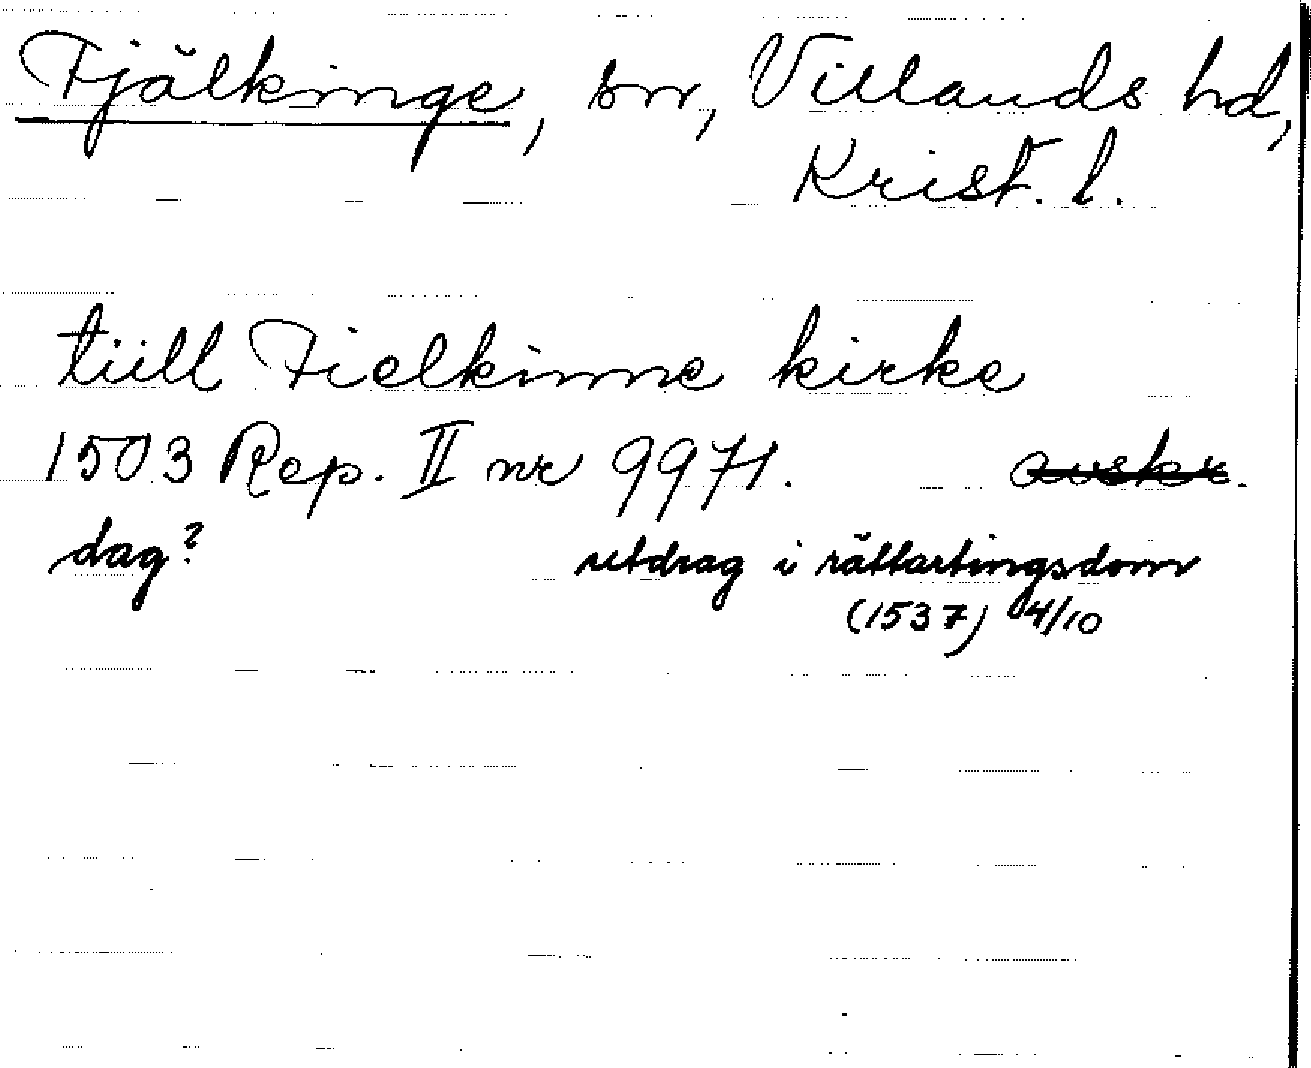 Fjälkinge, sn, Villands hd,
Krist. l.
tiill Fielkinne kirke
1503 Rep. II nr 9971. avskr.
dag? utdrag i rättartingsdom
(1537) 4/10